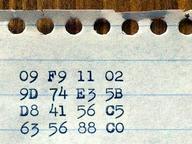 09 F9 11 02
9D 74 E3 5B
D8 41 56 C5
63 56 88 C0